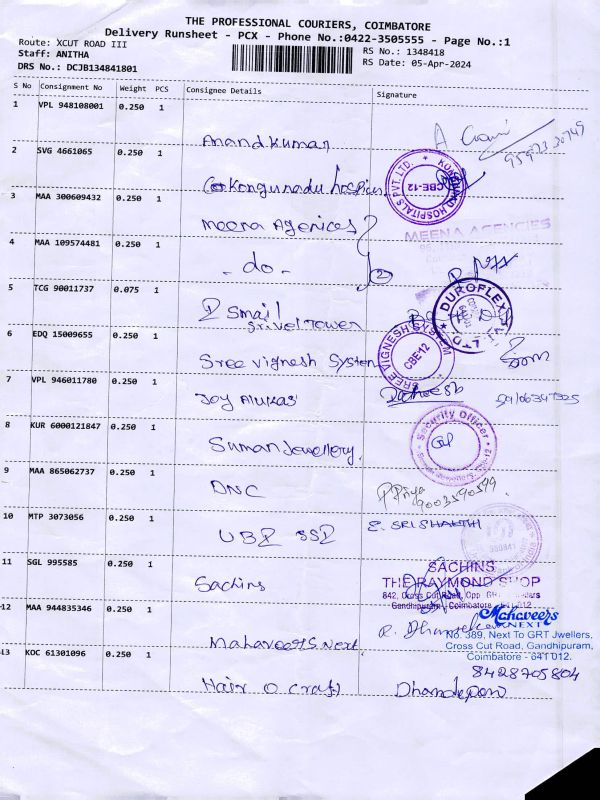 THE PROFESSIONAL COURIERS, COIMBATORE
Delivery Runsheet - PCX - Phone No.:0422-3505555 - Page No.:1
Route: XCUT ROAD III
Staff: ANITHA
DRS No.: DCJB134841801
RS No.: 1348418
RS Date: 05-Apr-2024
S No Consignment No Weight PCS Consignee Details Signature
1 VPL 948108001 0.250 1
Anandkumar
95973 30749
2 SVG 4661065 0.250 1
Kongunadu hospices
HOSPITALS PVT LTD.
CBE-12
3 MAA 300609432 0.250 1
meena Agenices
MEENA AGENCIES
4 MAA 109574481 0.250 1
- do -
5 TCG 90011737 0.075 1
Smail
Srivel Tower
DUROFLEX
LTD
6 EDQ 15009655 0.250 1
Sree vignesh System
SREE VIGNESH SYSTEM
CBE12
7 VPL 946011780 0.250 1
Joy Alukas
8 KUR 6000121847 0.250 1
Suman Jewellery.
Security Officer
9 MAA 865062737 0.250 1
DNC
P Priya
9003590599.
10 MTP 3073056 0.250 1
UBI SSI
E. SRI SHAKTHI
11 SGL 995585 0.250 1
Sachins
SACHINS
THE RAYMOND SHOP
842, Cross Cut Road, Opp. GRT
Gandhipuram, Coimbatore
12 MAA 944835346 0.250 1
Mahaveers Next
Mahaveers
NEXT
No. 389, Next To GRT Jwellers,
Cross Cut Road, Gandhipuram,
Coimbatore - 641 012.
8428705804
13 KOC 61301096 0.250 1
Hair O Craft